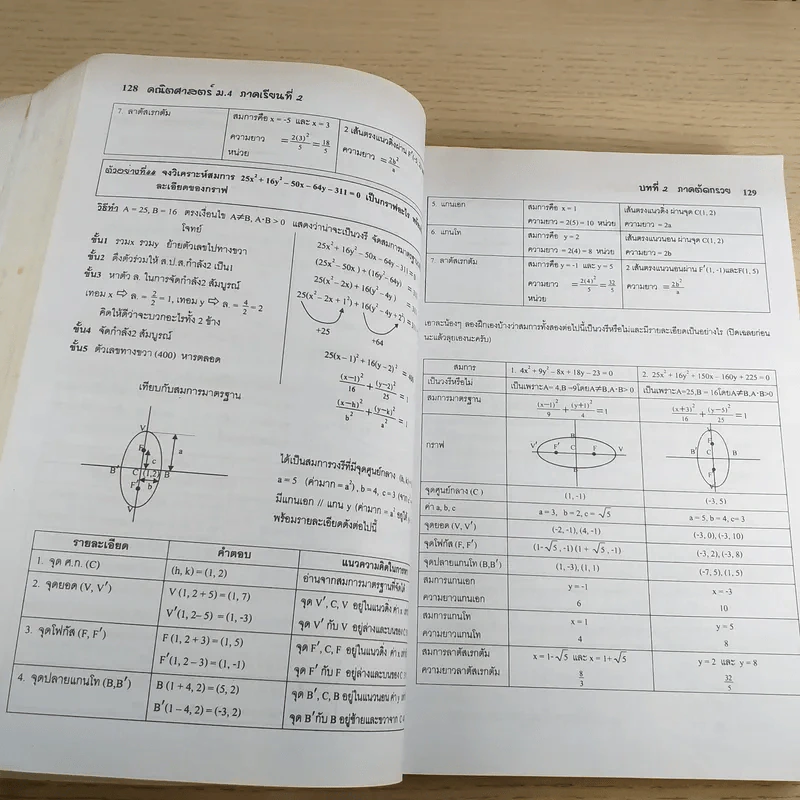 128 คณิตศาสตร์ ม.4 ภาคเรียนที่ 2
7. ลาตัสเรกตัม
สมการคือ x = -5 และ x = 3
ความยาว = 2(3)²/5 = 18/5
หน่วย
2 เส้นตรงแนวดิ่งผ่าน
ความยาว = 2b²/a
จงวิเคราะห์สมการ 25x² + 16y² – 50x – 64y – 311 = 0 เป็นกราฟอะไร
ละเอียดของกราฟ
วิธีทำ A = 25, B = 16 ตรงเงื่อนไข A≠B, A·B > 0 แสดงว่าน่าจะเป็นวงรี จัดสมการมาตรฐาน
โจทย์
25x² + 16y² – 50x – 64y – 311 = 0
ขั้น1 รวมx รวมy ย้ายตัวเลขไปทางขวา
(25x² – 50x ) + (16y² – 64y)
ขั้น2 ดึงตัวร่วมให้ ส.ป.ส.กำลัง2 เป็น1
25(x² – 2x) + 16(y² – 4y )
ขั้น3 หาตัว ล. ในการจัดกำลัง2 สัมบูรณ์
25(x² – 2x + 1²) + 16(y² – 4y + 2²)
เทอม x ⇨ ล. = 2/2 = 1, เทอม y ⇨ ล. = 4/2 = 2
คิดให้ดีว่าจะบวกอะไรทั้ง 2 ข้าง
+25 +64
ขั้น4 จัดกำลัง2 สัมบูรณ์
25(x – 1)² + 16(y – 2)² =
ขั้น5 ตัวเลขทางขวา (400) หารตลอด
(x–1)²/16 + (y–2)²/25 = 1
เทียบกับสมการมาตรฐาน
(x–h)²/b² + (y–k)²/a² = 1
V
F
c
a
B′ C (1,2) B
b
F′
V′
ได้เป็นสมการวงรีที่มีจุดศูนย์กลาง
a = 5 (ค่ามาก = a²), b = 4, c = 3
มีแกนเอก // แกน y (ค่ามาก = a²
พร้อมรายละเอียดดังต่อไปนี้
รายละเอียด คำตอบ
1. จุด ศ.ก. (C) (h, k) = (1, 2) อ่านจากสมการมาตรฐานที่จัดได้
2. จุดยอด (V, V′) V (1, 2 + 5) = (1, 7) จุด V′, C, V อยู่ในแนวดิ่ง ค่า x
V′(1, 2– 5) = (1, -3) จุด V′ กับ V อยู่ล่างและบนของ
3. จุดโฟกัส (F, F′) F (1, 2 + 3) = (1, 5) จุด F′, C, F อยู่ในแนวดิ่ง ค่า x
F′(1, 2 – 3) = (1, -1) จุด F′ กับ F อยู่ล่างและบนของ
4. จุดปลายแกนโท (B,B′) B (1 + 4, 2) = (5, 2) จุด B′, C, B อยู่ในแนวนอน ค่า y
B′(1 – 4, 2) = (-3, 2) จุด B′กับ B อยู่ซ้ายและขวาจาก
บทที่ 2 ภาคตัดกรวย 129
5. แกนเอก สมการคือ x = 1 เส้นตรงแนวดิ่ง ผ่านจุด C(1, 2)
ความยาว = 2(5) = 10 หน่วย ความยาว = 2a
6. แกนโท สมการคือ y = 2 เส้นตรงแนวนอน ผ่านจุด C(1, 2)
ความยาว = 2(4) = 8 หน่วย ความยาว = 2b
7. ลาตัสเรกตัม สมการคือ y = -1 และ y = 5 2 เส้นตรงแนวนอนผ่าน F′(1, -1)และF(1, 5)
ความยาว = 2(4)²/5 = 32/5 ความยาว = 2b²/a
หน่วย
เอาละน้องๆ ลองฝึกเองบ้างว่าสมการทั้งสองต่อไปนี้เป็นวงรีหรือไม่และมีรายละเอียดเป็นอย่างไร (ปิดเฉลยก่อน
นะแล้วลุยเองนะครับ)
สมการ 1. 4x² + 9y² – 8x + 18y – 23 = 0 2. 25x² + 16y² + 150x – 160y + 225 = 0
เป็นวงรีหรือไม่ เป็นเพราะA= 4,B =9โดยA≠B,A·B> 0 เป็นเพราะA=25,B = 16โดยA≠B,A·B>0
สมการมาตรฐาน (x–1)²/9 + (y+1)²/4 = 1 (x+3)²/16 + (y–5)²/25 = 1
กราฟ
B
V′ F′ C F V
B′
V
F
B′ C B
F′
V′
จุดศูนย์กลาง (C ) (1, -1) (-3, 5)
ค่า a, b, c a = 3, b = 2, c = √5 a = 5, b = 4, c= 3
จุดยอด (V, V′) (-2, -1), (4, -1) (-3, 0), (-3, 10)
จุดโฟกัส (F, F′) (1- √5 , -1) (1 + √5 , -1) (-3, 2), (-3, 8)
จุดปลายแกนโท (B,B′) (1, -3), (1, 1) (-7, 5), (1, 5)
สมการแกนเอก y = –1 x = –3
ความยาวแกนเอก 6 10
สมการแกนโท x = 1 y = 5
ความยาวแกนโท 4 8
สมการลาตัสเรกตัม x = 1- √5 และ x = 1+ √5 y = 2 และ y = 8
ความยาวลาตัสเรกตัม 8/3 32/5